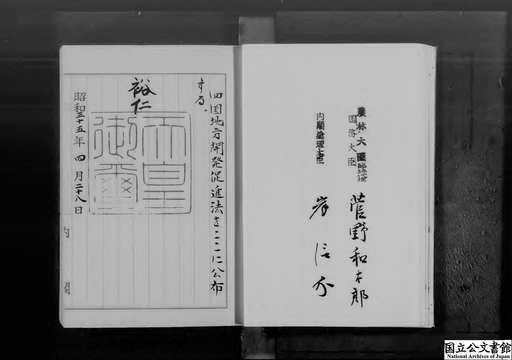 農林大臣臨時代理
国務大臣 菅野和太郎
内閣総理大臣 岸信介
四国地方開発促進法をここに公布
する。
裕仁
天皇
御璽
昭和三十五年四月二十八日
内閣
国立公文書館
National Archives of Japan